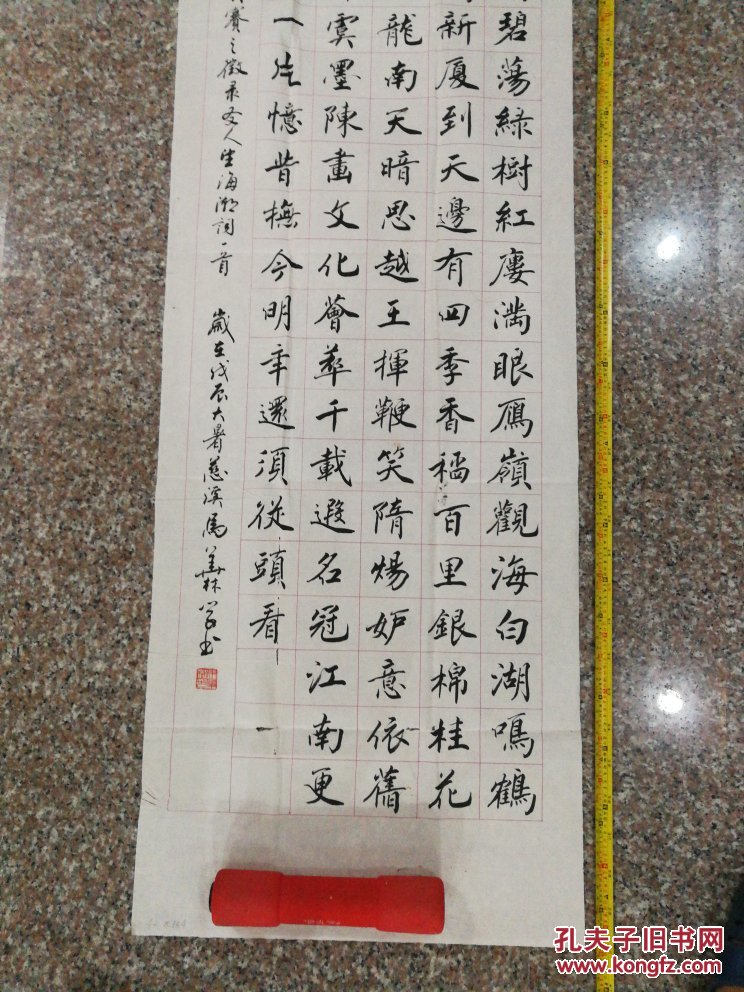 碧蕩綠樹紅廔満眼雁嶺觀海白湖鳴鶴
新厦到天邊有四季香稻百里銀棉桂花
龍南天暗思越王揮鞭笑隋煬妒意依舊
虞墨陳畫文化薈萃千載遐名冠江南更
一片憶昔撫今明年還須從頭看
賽之徵录友人生海潮詞一首 歲在戊辰大暑慈溪馬華林學书
孔夫子旧书网
www.kongfz.com